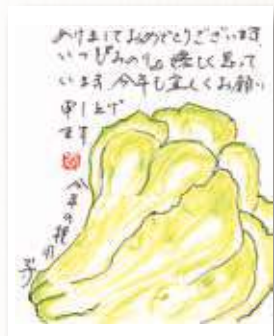 あけましておめでとうございます
いつも『みのり』嬉しく思って
います 今年も宜しくお願い
申し上げ
ます
今年の穫り